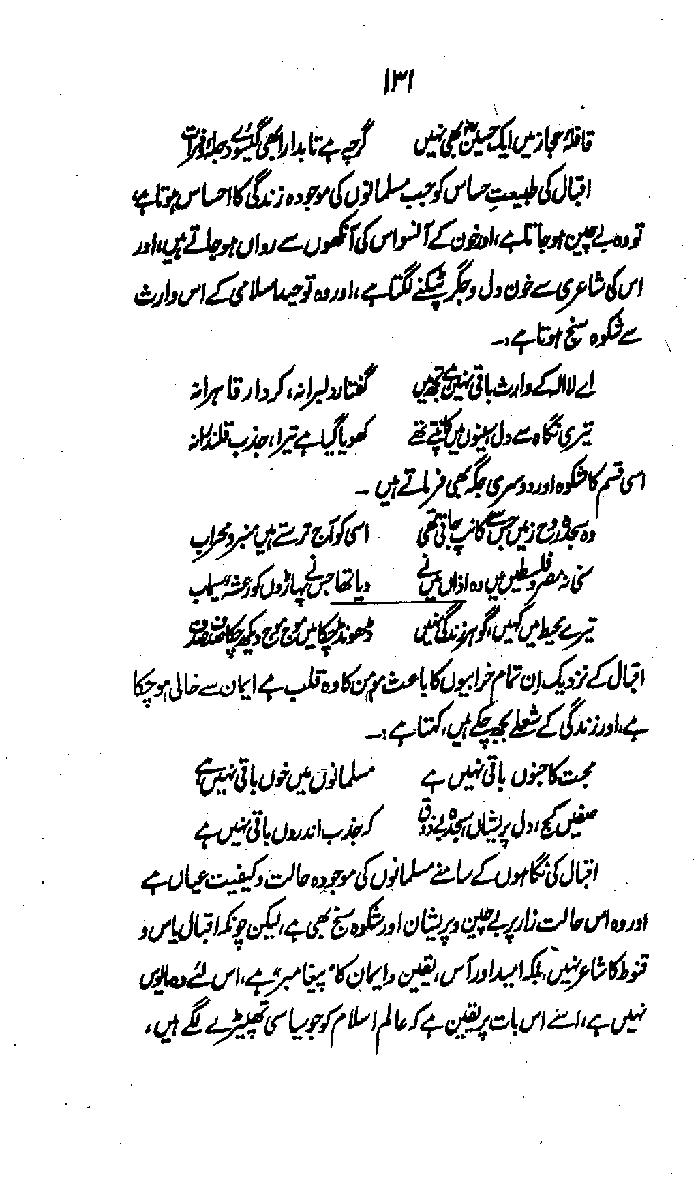 ۱۳۱
قافلۂ حجاز میں ایک حسینؓ بھی نہیں گرچہ ہے تابدار ابھی گیسوئے دجلہ و فرات
اقبال کی طبیعتِ حساس کو جب مسلمانوں کی موجودہ زندگی کا احساس ہوتا ہے
تو وہ بے چین ہو جاتا ہے، اور خون کے آنسو اس کی آنکھوں سے رواں ہو جاتے ہیں، اور
اس کی شاعری سے خون دل و جگر ٹپکنے لگتا ہے، اور وہ توحید اسلامی کے اس وارث
سے شکوہ سنج ہوتا ہے:۔
اے لا الہ کے وارث باقی نہیں ہے تجھ میں گفتار دلبرانہ، کردار قاہرانہ
تیری نگاہ سے دل سینوں میں کانپتے تھے کھویا گیا ہے تیرا، جذب قلندرانہ
اسی قسم کا شکوہ اور دوسری جگہ بھی فرماتے ہیں ۔
وہ سجدہ روح زمیں جس سے کانپ جاتی تھی اسی کو آج ترستے ہیں منبر و محراب
سنی نہ مصر و فلسطین میں وہ اذاں میں نے دیا تھا جس نے پہاڑوں کو رعشۂ سیماب
تیرے محیط میں کہیں، گوہر زندگی نہیں ڈھونڈ چکا میں موج موج دیکھ چکا صدف صدف
اقبال کے نزدیک ان تمام خرابیوں کا باعث مومن کا وہ قلب ہے ایمان سے خالی ہو چکا
ہے، اور زندگی کے شعلے بجھ چکے ہیں، کہتا ہے:۔
محبت کا جنوں باقی نہیں ہے مسلمانوں میں خوں باقی نہیں ہے
صفیں کج، دل پریشاں، سجدہ بے ذوق کہ جذب اندروں باقی نہیں ہے
اقبال کی نگاہوں کے سامنے مسلمانوں کی موجودہ حالت و کیفیت عیاں ہے
اور وہ اس حالت زار پر بے چین و پریشان اور شکوہ سنج بھی ہے، لیکن چونکہ اقبال یاس و
قنوط کا شاعر نہیں، بلکہ امید اور آس، یقین و ایمان کا "پیغامبر" ہے، اس لئے وہ مایوس
نہیں ہے، اسے اس بات پر یقین ہے کہ عالم اسلام کو جو سیاسی تھپیڑے لگے ہیں،